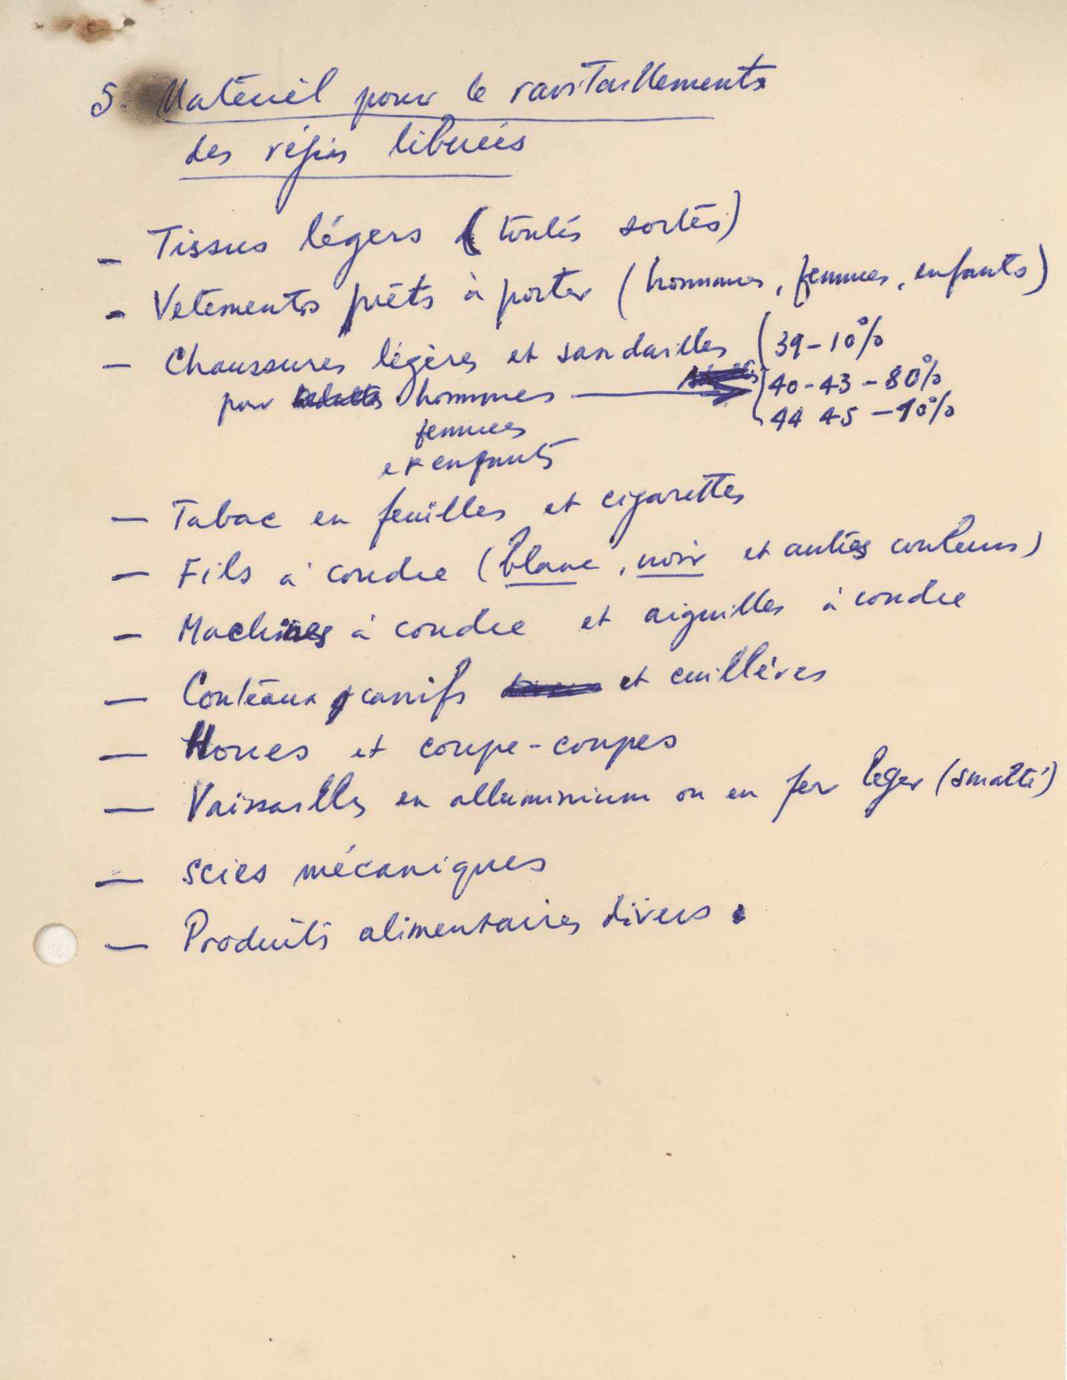 5. Matériel pour le ravitaillements
des régions libérées
- Tissus légers (toutes sortes)
- Vetements prêts à porter (hommes, femmes, enfants)
- Chaussures légères et sandailles (39-10%
pour adultes hommes 40-43-80%
femmes 44 45 -10%
et enfants
- Tabac en feuilles et cigarettes
- Fils à coudre (blanc, noir et autres couleurs)
- Machines à coudre et aiguilles à coudre
- Couteaux, canifs et cuillères
- Houes et coupe-coupes
- Vaissailles en alluminium ou en fer léger (smalté)
- Scies mécaniques
- Produits alimentaires divers.